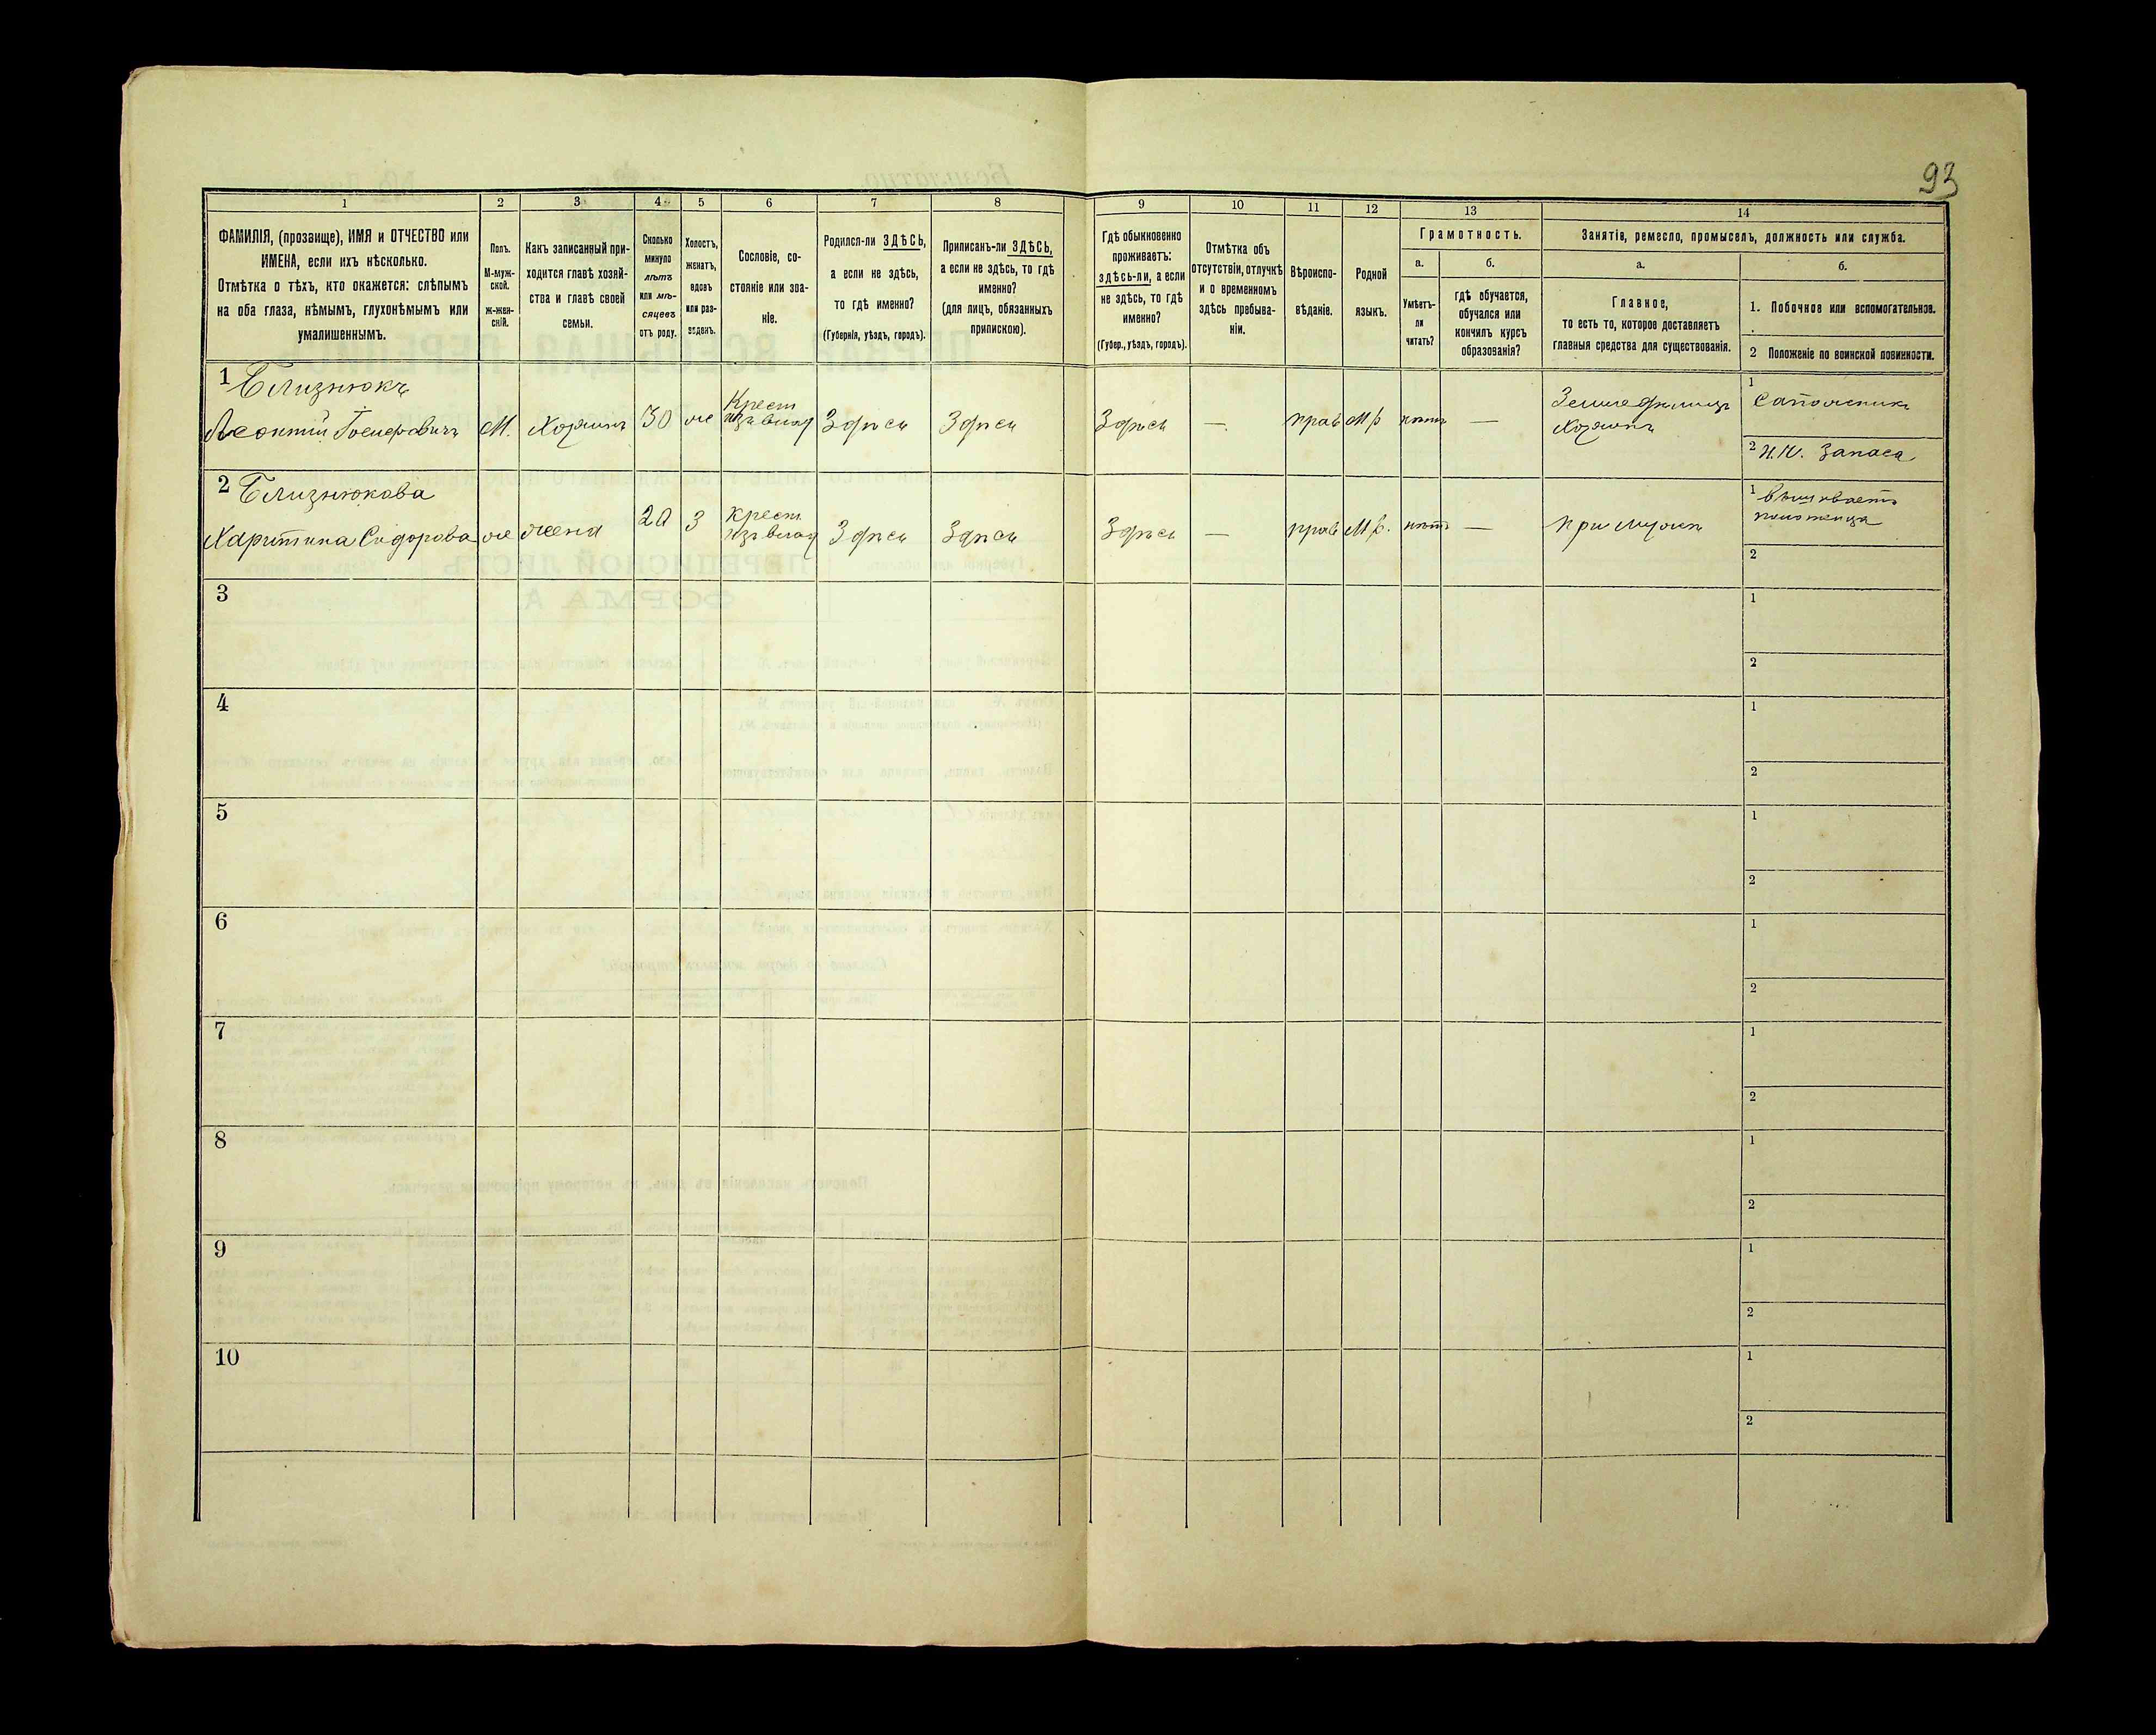 93
1 2 3 4 5 6 7 8 9 10 11 12 13 14
ФАМИЛІЯ, (прозвище), ИМЯ и ОТЧЕСТВО или
ИМЕНА, если ихъ нѣсколько.
Отмѣтка о тѣхъ, кто окажется: слѣпымъ
на оба глаза, нѣмымъ, глухонѣмымъ или
умалишеннымъ.
Полъ.
М-муж-
ской.
ж-жен-
скій.
Какъ записанный при-
ходится главѣ хозяй-
ства и главѣ своей
семьи.
Сколько
минуло
лѣтъ
или мѣ-
сяцевъ
отъ роду.
Холостъ,
женатъ,
вдовъ
или раз-
веденъ.
Сословіе, со-
стояніе или зва-
ніе.
Родился-ли ЗДѢСЬ,
а если не здѣсь,
то гдѣ именно?
(Губернія, уѣздъ, городъ).
Приписанъ-ли ЗДѢСЬ,
а если не здѣсь, то гдѣ
именно?
(для лицъ, обязанныхъ
припискою).
Гдѣ обыкновенно
проживаетъ:
здѣсь-ли, а если
не здѣсь, то гдѣ
именно?
(Губер., уѣздъ, городъ).
Отмѣтка объ
отсутствіи, отлучкѣ
и о временномъ
здѣсь пребыва-
ніи.
Вѣроиспо-
вѣданіе.
Родной
языкъ.
Грамотность.
а.
Умѣетъ-
ли
читать?
б.
гдѣ обучается,
обучался или
кончилъ курсъ
образованія?
Занятіе, ремесло, промыселъ, должность или служба.
а.
Главное,
то есть то, которое доставляетъ
главныя средства для существованія.
б.
1. Побочное или вспомогательное.
2 Положеніе по воинской повинности.
1 Близнюкъ
Леонтій Іосифовичъ М. Хозяинъ 30 ж Крест изъ влад Здѣсь Здѣсь Здѣсь — прав М р нѣтъ —
Земледѣлецъ
Хозяинъ
1 Сапожникъ
2 Запаса
2 Близнюкова
Харитина Сидорова ж жена 20 З Крест изъ влад Здѣсь Здѣсь Здѣсь — прав М р. нѣтъ — при мужѣ
1
2
3
1
2
4
1
2
5
1
2
6
1
2
7
1
2
8
1
2
9
1
2
10
1
2